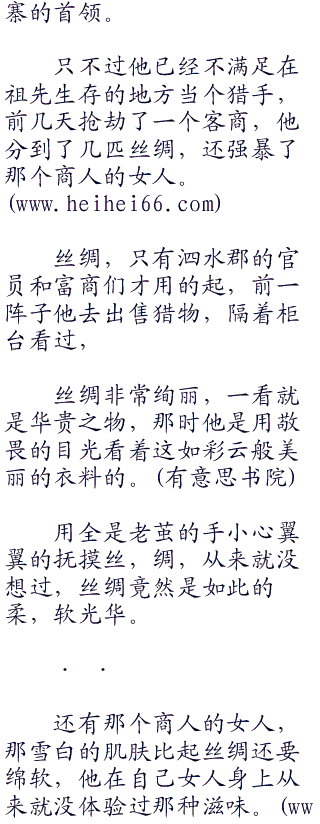 寨的首领。
只不过他已经不满足在
祖先生存的地方当个猎手，
前几天抢劫了一个客商，他
分到了几匹丝绸，还强暴了
那个商人的女人。
(www.heihei66.com)
丝绸，只有泗水郡的官
员和富商们才用的起，前一
阵子他去出售猎物，隔着柜
台看过，
丝绸非常绚丽，一看就
是华贵之物，那时他是用敬
畏的目光看着这如彩云般美
丽的衣料的。(有意思书院)
用全是老茧的手小心翼
翼的抚摸丝，绸，从来就没
想过，丝绸竟然是如此的
柔，软光华。
. .
还有那个商人的女人，
那雪白的肌肤比起丝绸还要
绵软，他在自己女人身上从
来就没体验过那种滋味。(ww